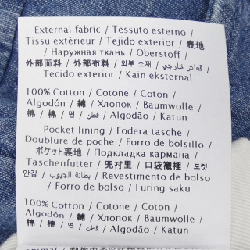 External fabric / Tessuto esterno /
Tissu extérieur / Tejido exterior / 表地
/ Наружная ткань / Oberstoff /
外部面料 / 外部布料 / 외부 소재 / قماش خارجي /
Tecido exterior / Kain eksternal
100% Cotton / Cotone / Coton /
Algodón / 綿 / Хлопок / Baumwolle /
棉 / 棉 / 면 / قطن / Algodão / Katun
Pocket lining / Fodera tasche /
Doublure de poche / Forro de bolsillo
/ ポケット裏地 / Подкладка кармана /
Taschenfutter / 兜衬里 / 口袋襯裡 / 포켓
안감 / بطانة الجيب / Revestimento de bolso
/ Forro de bolso / Furing saku
100% Cotton / Cotone / Coton /
Algodón / 綿 / Хлопок / Baumwolle /
棉 / 棉 / 면 / قطن / Algodão / Katun